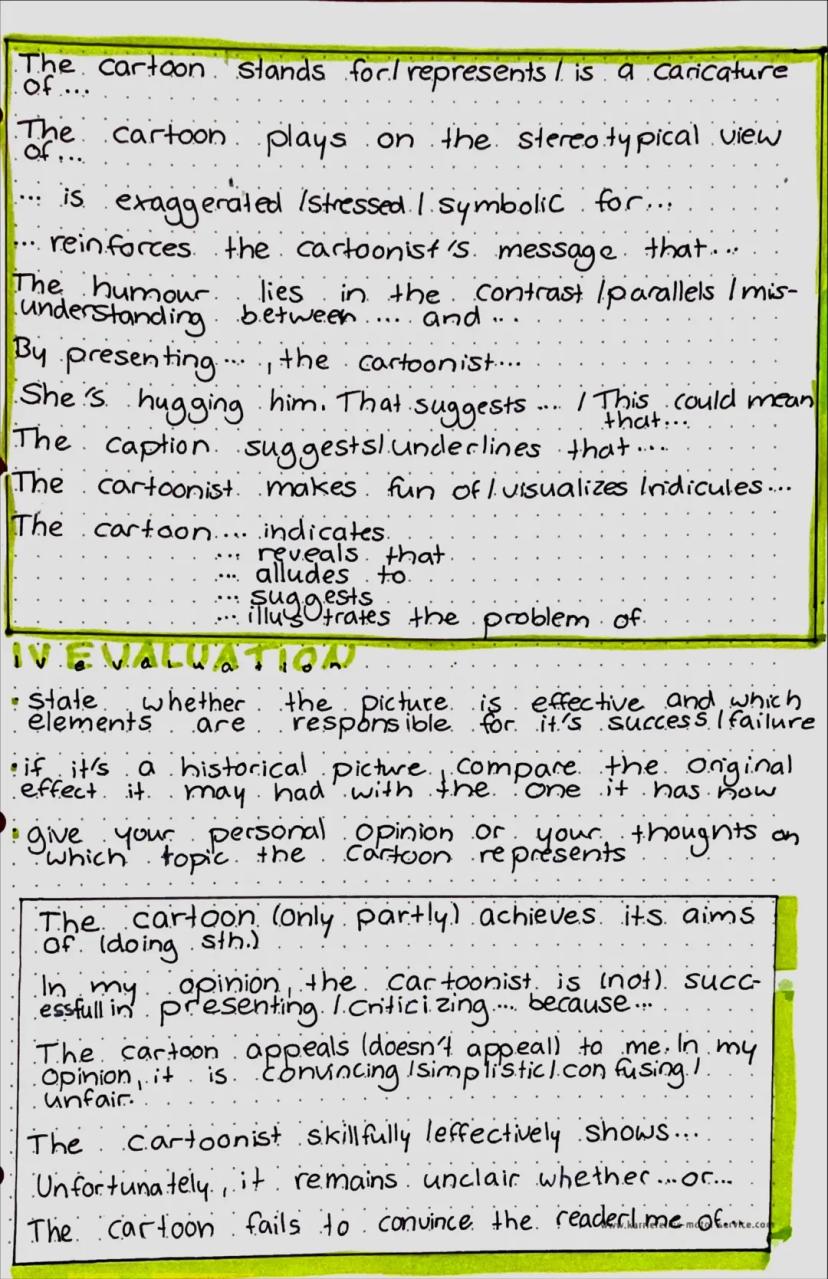 The cartoon stands for/represents/ is a caricature
of...
The cartoon plays on the stereotypical view
of...
... is exaggerated /stressed/ symbolic for...
... reinforces the cartoonist's message that...
The humour lies in the contrast /parallels /mis-
understanding between .... and ...
By presenting ..., the cartoonist...
She's hugging him. That suggests ... / This could mean
that...
The caption suggests/underlines that...
The cartoonist makes fun of/visualizes/ridicules...
The cartoon ... indicates
... reveals that
... alludes to
... suggests
... illustrates the problem of
IV EVALUATION
evaluation
• state whether the picture is effective and which
elements are responsible for it's success/failure
• if it's a historical picture, compare the original
effect it may had with the one it has now
• give your personal opinion or your thoughts on
which topic the cartoon represents
The cartoon (only partly) achieves its aims
of (doing sth.)
In my opinion, the cartoonist is (not) succ-
essfull in presenting /criticizing ... because...
The cartoon appeals (doesn't appeal) to me. In my
opinion, it is convincing /simplistic/confusing/
unfair.
The cartoonist skillfully /effectively shows...
Unfortunately, it remains unclair whether ... or...
The cartoon fails to convince the reader/me of...